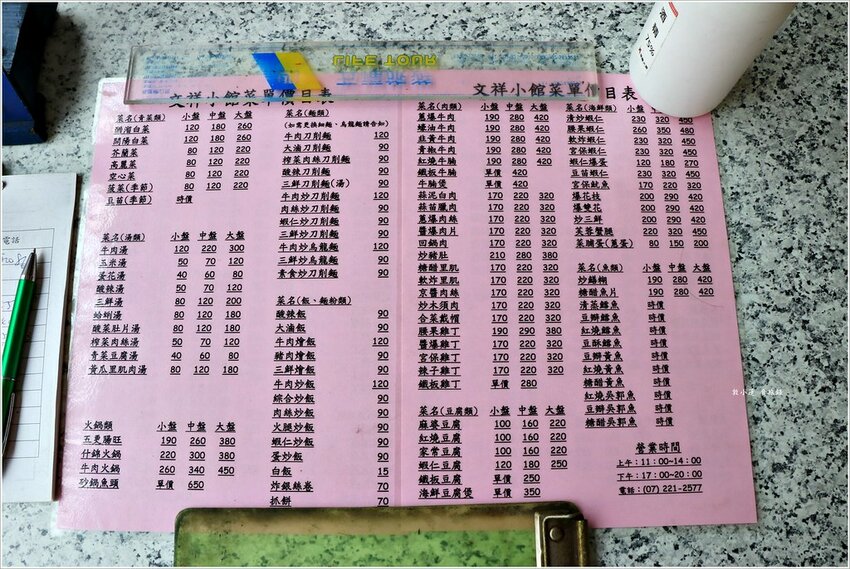 LIFE TOUR
酒精
75%
電話
文祥小館菜單價目表
菜名(青菜類) 小盤 中盤 大盤
開洋白菜 120 180 260
芥蘭菜 80 120 220
高麗菜 80 120 220
空心菜 80 120 220
菠菜(季節) 80 120 220
豆苗(季節) 時價
菜名(湯類) 小盤 中盤 大盤
牛肉湯 120 220 300
玉米湯 50 70 120
蛋花湯 40 60 80
酸辣湯 50 70 120
三鮮湯 80 120 200
蛤蜊湯 80 120 180
酸菜肚片湯 80 120 180
榨菜肉絲湯 50 70 120
青菜豆腐湯 40 60 80
黃瓜里肌肉湯 80 120 180
火鍋類 小盤 中盤 大盤
五更腸旺 190 260 380
什錦火鍋 220 300 380
牛肉火鍋 260 340 450
砂鍋魚頭 單價 650
菜名(麵類)
(如需更換細麵、烏龍麵請告知)
牛肉刀削麵 120
大滷刀削麵 90
榨菜肉絲刀削麵 90
酸辣刀削麵 90
三鮮刀削麵(湯) 90
牛肉炒刀削麵 120
肉絲炒刀削麵 90
蝦仁炒刀削麵 90
三鮮炒刀削麵 90
牛肉炒烏龍麵 120
三鮮炒烏龍麵 90
素食炒刀削麵 90
菜名(飯、麵粉類)
酸辣飯 90
大滷飯 90
牛肉燴飯 120
豬肉燴飯 90
三鮮燴飯 90
牛肉炒飯 120
綜合炒飯 90
肉絲炒飯 90
火腿炒飯 90
蝦仁炒飯 90
蛋炒飯 90
白飯 15
炸銀絲卷 70
抓餅 70
文祥小館菜單價目表
菜名(肉類) 小盤 中盤 大盤
蔥爆牛肉 190 280 420
蠔油牛肉 190 280 420
韭黃牛肉 190 280 420
青椒牛肉 190 280 420
紅燒牛腩 190 280 420
鐵板牛腩 單價 420
牛腩煲 單價 420
蒜泥白肉 170 220 320
蒜苗臘肉 170 220 320
蔥爆肉絲 170 220 320
醬爆肉片 170 220 320
回鍋肉 170 220 320
炒豬肚 210 280 380
糖醋里肌 170 220 320
軟炸里肌 170 220 320
京醬肉絲 170 220 320
炒木須肉 170 220 320
合菜戴帽 170 220 320
腰果雞丁 190 290 380
醬爆雞丁 170 220 320
宮保雞丁 170 220 320
辣子雞丁 170 220 320
鐵板雞丁 單價 280
菜名(豆腐類) 小盤 中盤 大盤
麻婆豆腐 100 160 220
紅燒豆腐 100 160 220
家常豆腐 100 160 220
蝦仁豆腐 120 180 250
鐵板豆腐 單價 250
海鮮豆腐煲 單價 350
菜名(海鮮類) 小盤
清炒蝦仁 230 320 450
腰果蝦仁 230 350 480
軟炸蝦仁 230 320 450
宮保蝦仁 230 320 450
蝦仁爆蛋 120 180 270
豆苗蝦仁 230 320 450
宮保魷魚 170 220 320
爆花枝 200 290 420
爆雙花 200 290 420
炒三鮮 200 290 420
芙蓉蟹腿 220 320 450
菜脯蛋(蔥蛋) 80 150 200
菜名(魚類) 小盤 中盤 大盤
炒鱔糊 190 280 420
糖醋魚片 190 280 420
清蒸鱈魚 時價
豆瓣鱈魚 時價
紅燒鱈魚 時價
豆酥鱈魚 時價
豆瓣黃魚 時價
紅燒黃魚 時價
糖醋黃魚 時價
紅燒吳郭魚 時價
豆瓣吳郭魚 時價
糖醋吳郭魚 時價
營業時間
上午:11:00~14:00
下午:17:00~20:00
電話:(07) 221-2577